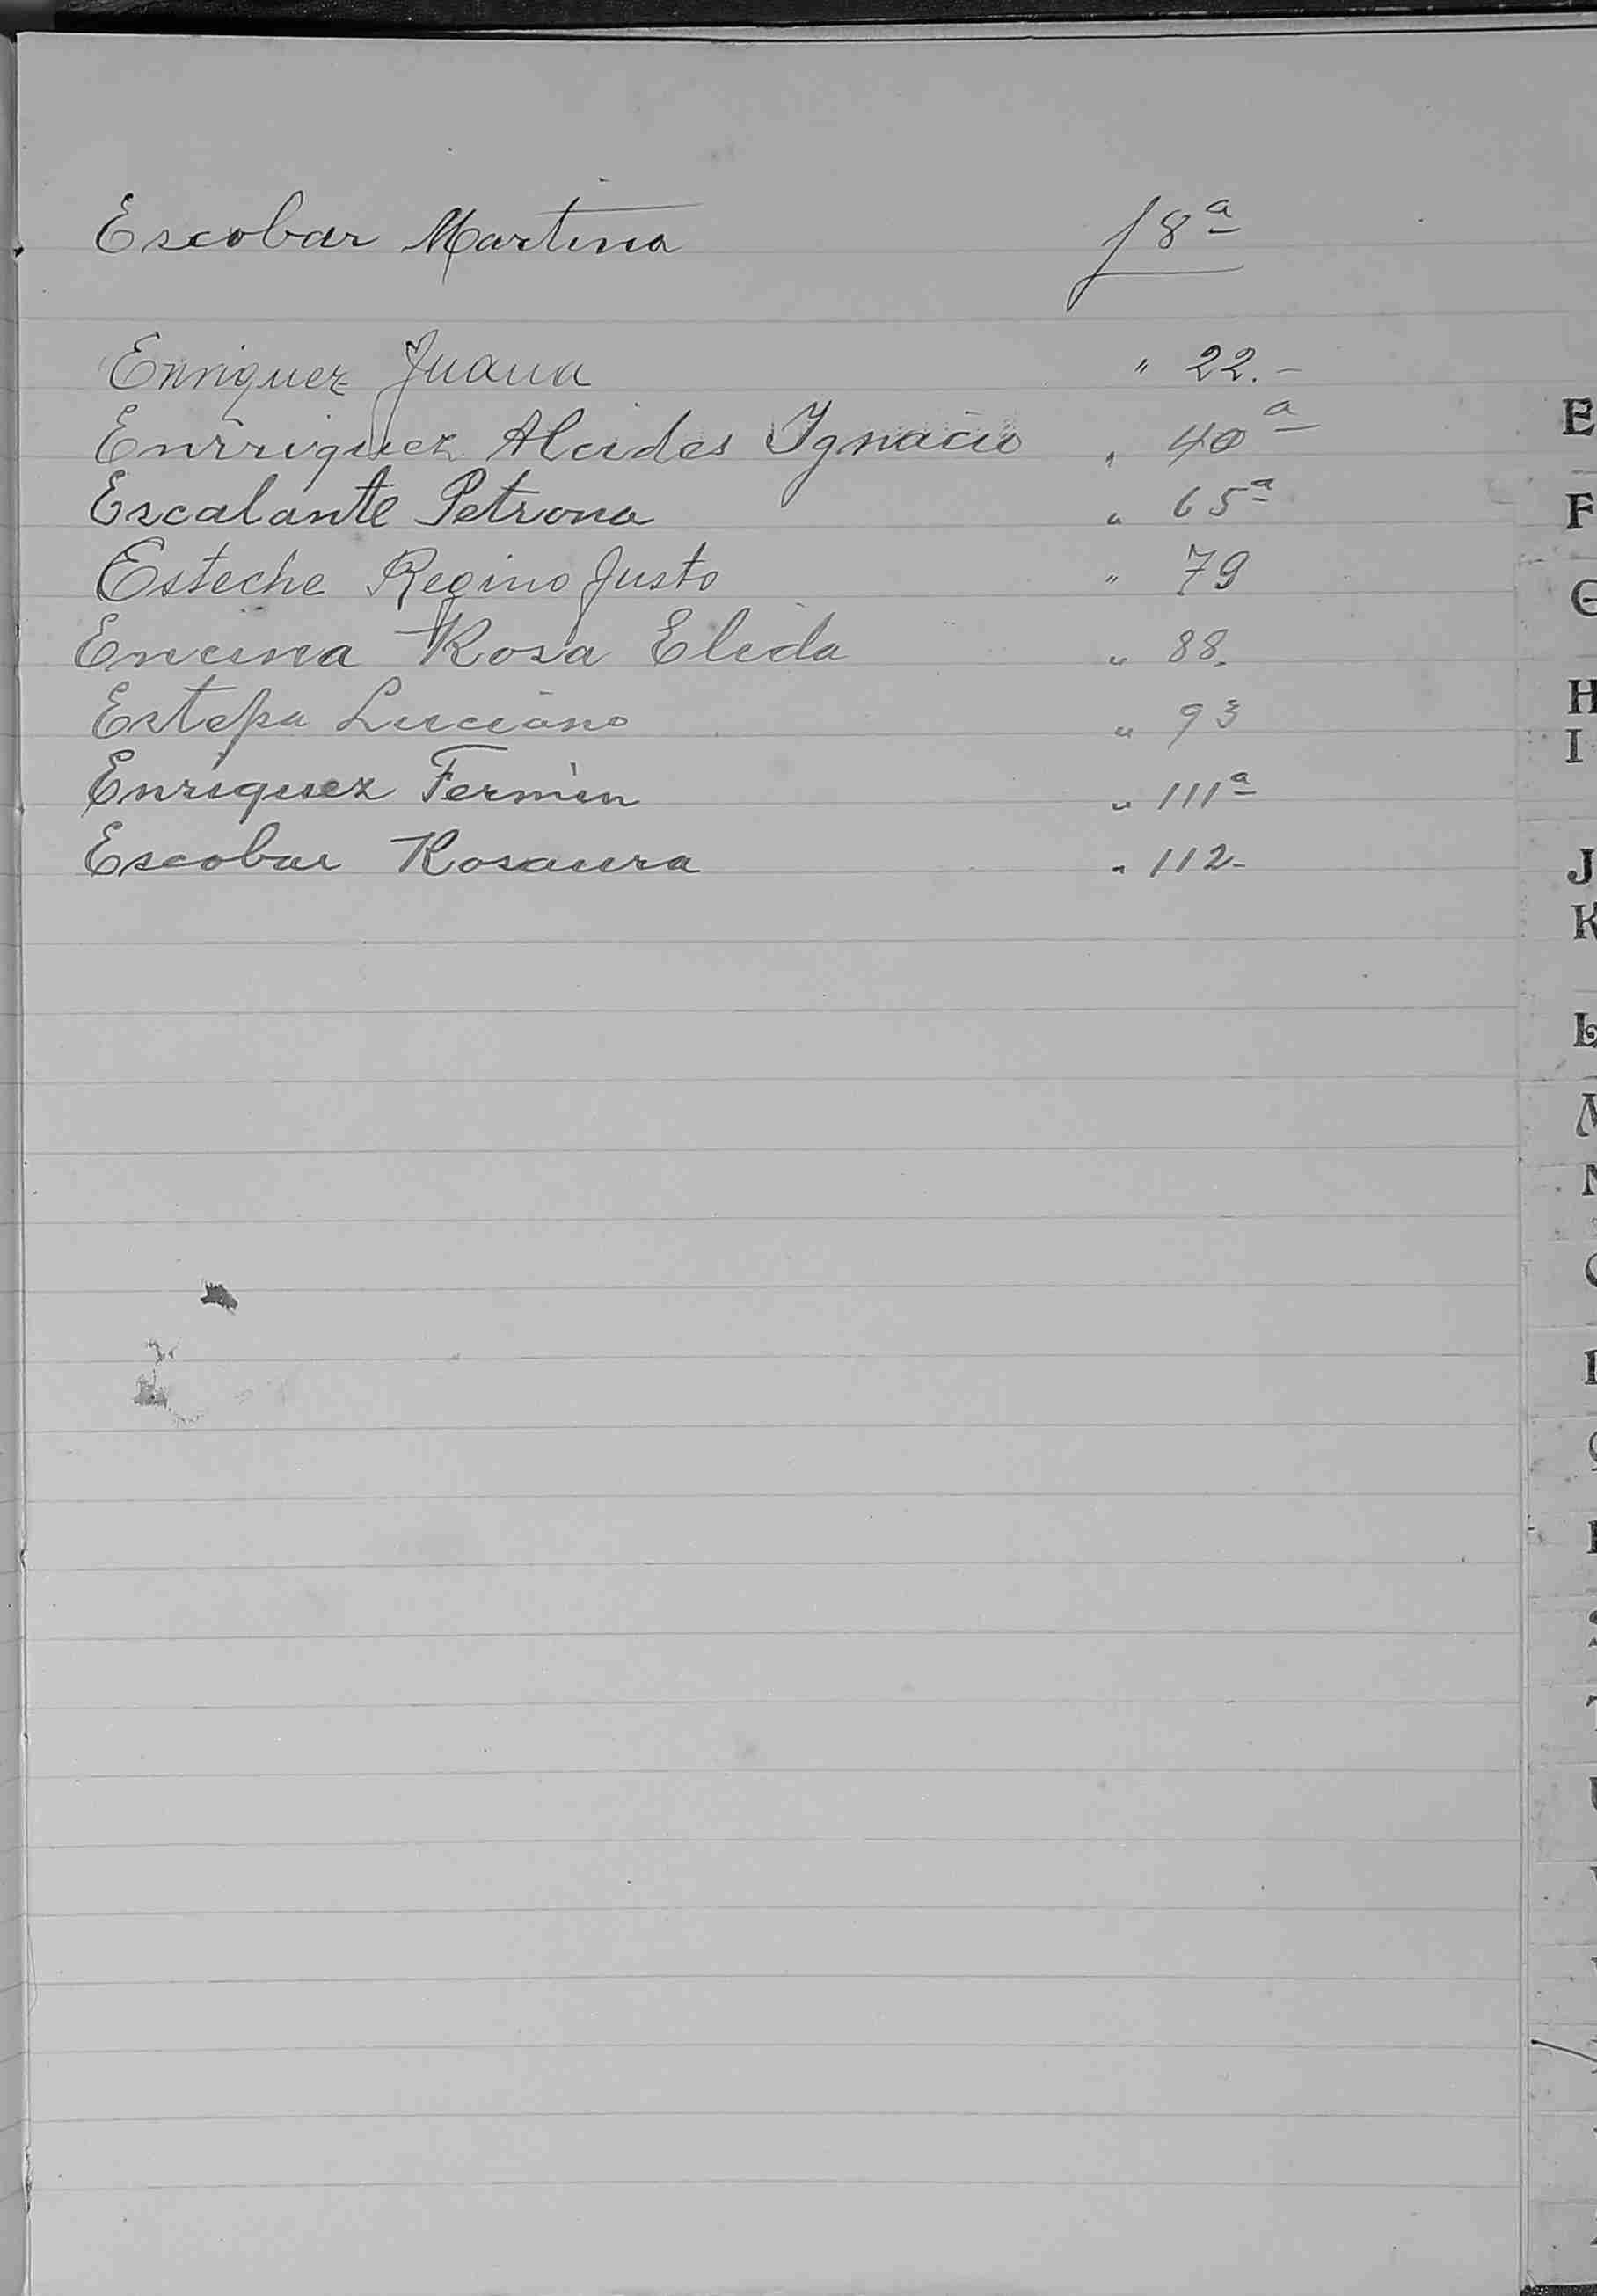 Escobar Martina f 8ª
Enriquez Juana " 22.-
Enrriquez Alcides Ignacio " 40ª
Escalante Petrona " 65ª
Esteche Regino Justo " 79
Encina Rosa Elida " 88.
Estepa Luciano " 93
Enriquez Fermín " 111ª
Escobar Rosaura " 112-
E
F
G
H
I
J
K
L
M
N